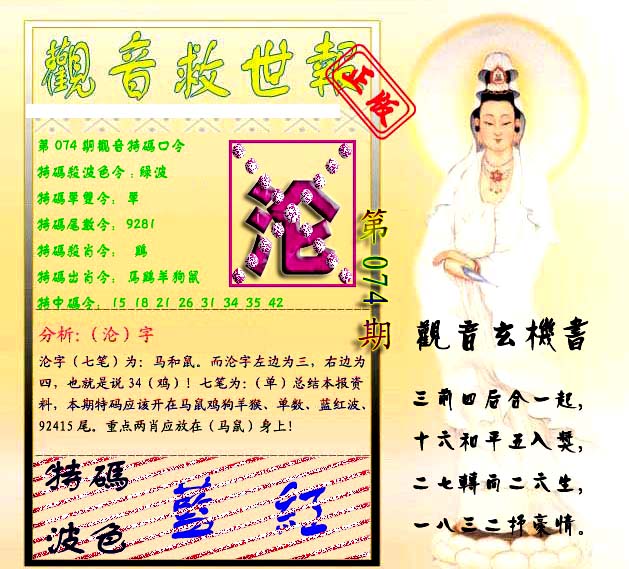 觀音救世報
正版
第074期觀音特碼口令
特碼殺波色令：綠波
特碼單雙令： 單
特碼尾數令： 9281
特碼殺肖令： 鷄
特碼出肖令： 馬鷄羊狗鼠
特中碼令： 15 18 21 26 31 34 35 42
沦
第074期
分析：（沦）字
沦字（七笔）为：马和鼠。而沦字左边为三，右边为
四，也就是说 34（鸡）！七笔为：（单）总结本报资
料，本期特码应该开在马鼠鸡狗羊猴、单数、蓝红波、
92415 尾。重点两肖应放在（马鼠）身上！
特碼
波色
藍 紅
觀音玄機書
三前四后合一起，
十六和平五入獎，
二七轉而二六生，
一八三二抒豪情。